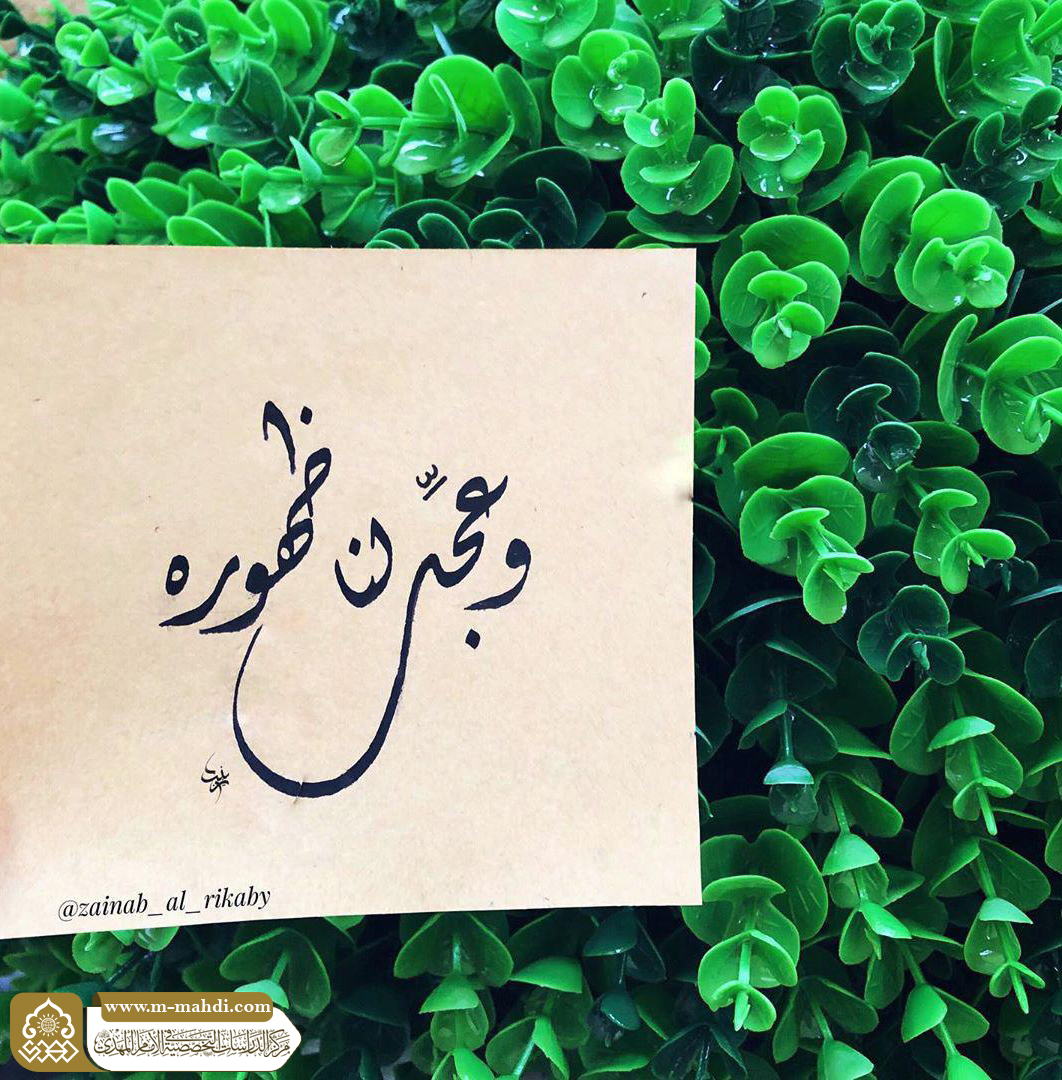 وعجّل لنا ظهوره
زينب
@zainab_al_rikaby
www.m-mahdi.com
مركز الدراسات التخصصية في الإمام المهدي